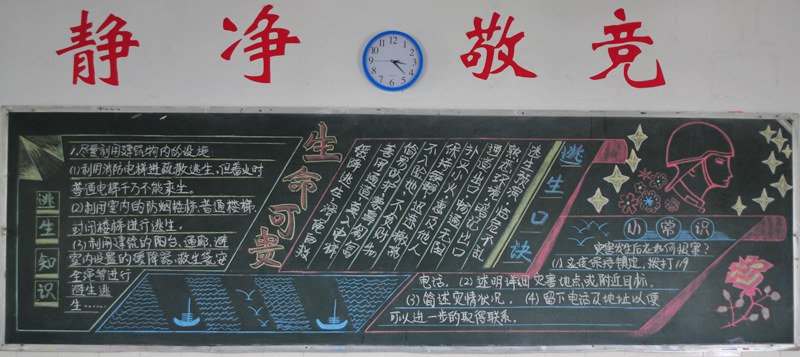 静 净 敬 竞
逃生知识
1.尽量利用建筑物内的设施
(1)利用消防电梯进行疏散逃生,但着火时
普通电梯千万不能乘坐。
(2)利用室内的防烟楼梯、普通楼梯、
封闭楼梯进行逃生。
(3)利用建筑的阳台、通廊、避
室内设置的缓降器、救生袋、安
全绳等进行
逃生
生……
生命可贵
逃生口诀
逃生预演,临危不乱
熟悉环境,暗记出口
通道出口,畅通无阻
扑灭小火,惠及他人
不入险地,不贪财物
缓降逃生,滑绳自救
小常识
灾害发生后应如何报案?
(1)应该保持镇定,拨打119
电话,(2)述明详细灾害地点或附近目标,
(3)简述灾情状况,(4)留下电话及地址以便
可以进一步的取得联系。